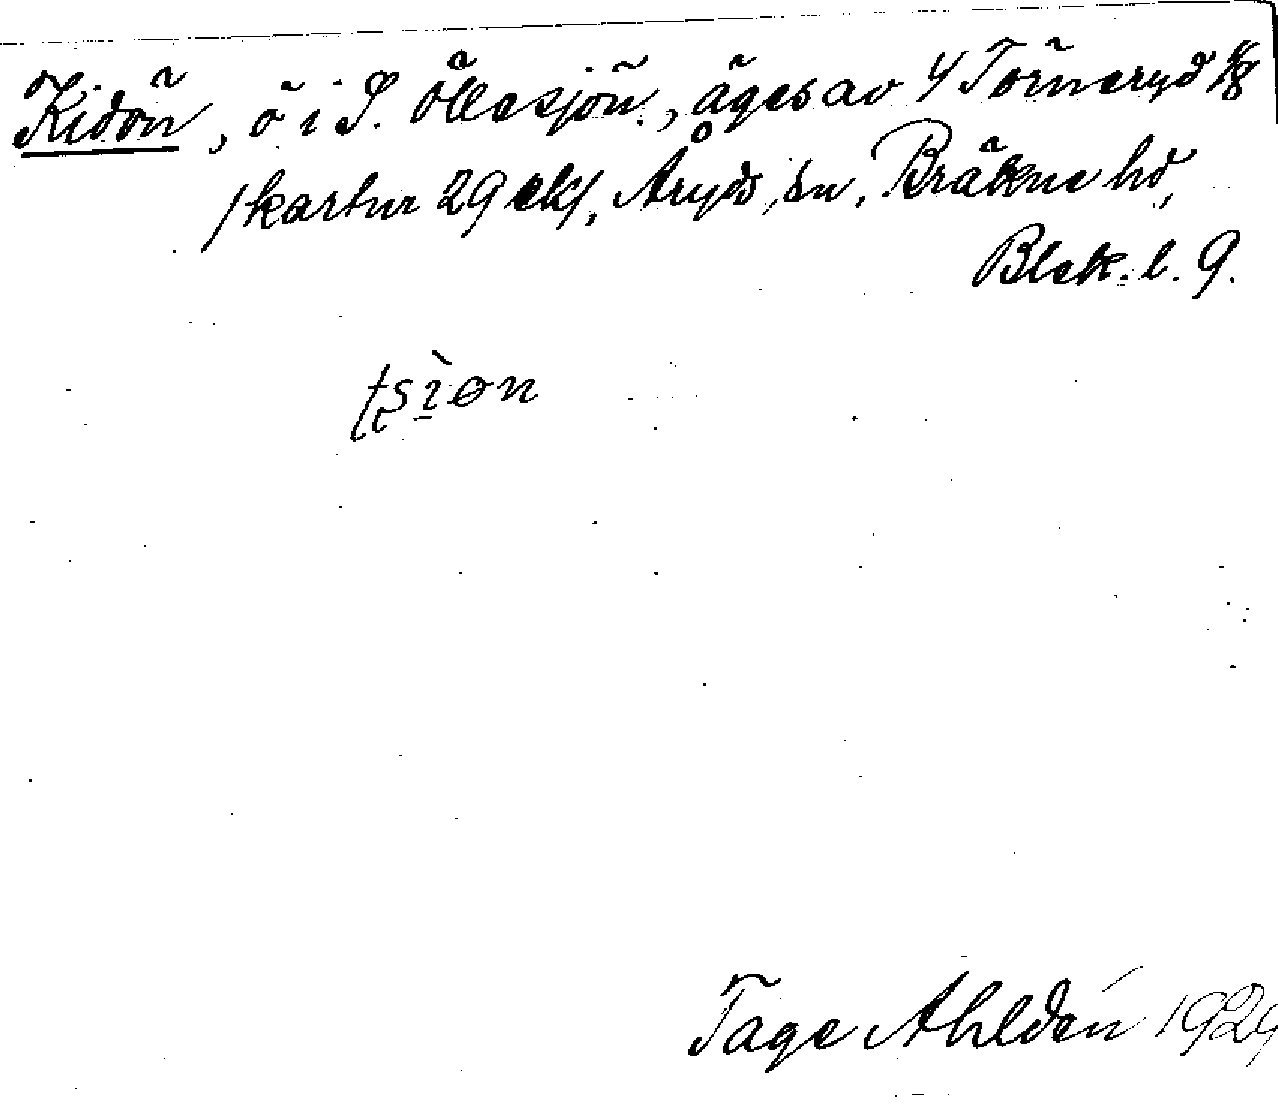 Kidön, ö i S. Öllesjön, äges av 4 Törneryd 1/8
/kartnr 29 ek/, Åryds sn, Bräkne hd,
Blek. l. 9.
tṣı̀ɵn
Tage Ahldén 1929